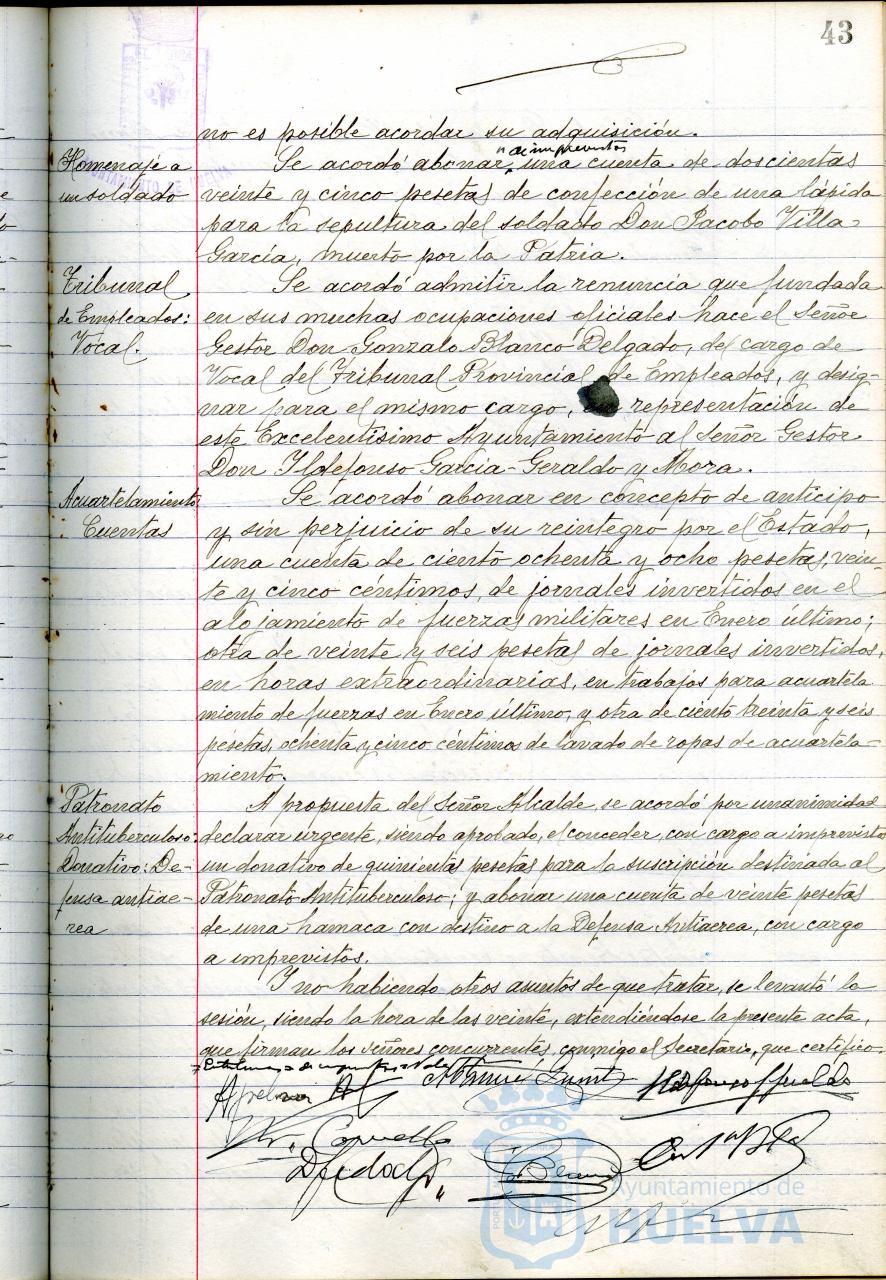 43
no es posible acordar su adquisición.
Homenaje a
un soldado
"de imprevistos
Se acordó abonar, una cuenta de doscientas
veinte y cinco pesetas de confección de una lápida
para la sepultura del soldado Don Jacobo Villa
García, muerto por la Patria.
Tribunal
de Empleados:
Vocal.
Se acordó admitir la renuncia que fundada
en sus muchas ocupaciones oficiales hace el Señor
Gestor Don Gonzalo Blanco Delgado, del cargo de
Vocal del Tribunal Provincial de Empleados, y desig-
nar para el mismo cargo, en representación de
este Excelentísimo Ayuntamiento al Señor Gestor
Don Ildefonso García-Geraldo y Mora.
Acuartelamiento
Cuentas
Se acordó abonar en concepto de anticipo
y sin perjuicio de su reintegro por el Estado,
una cuenta de ciento ochenta y ocho pesetas, vein-
te y cinco céntimos, de jornales invertidos en el
alojamiento de fuerzas militares en Enero último;
otra de veinte y seis pesetas de jornales invertidos,
en horas extraordinarias, en trabajos para acuartela
miento de fuerzas en Enero último, y otra de ciento treinta y seis
pesetas, ochenta y cinco céntimos de lavado de ropas de acuartela-
miento.
Patronato
Antituberculoso:
Donativo: De-
fensa antiaé-
rea
A propuesta del Señor Alcalde, se acordó por unanimidad
declarar urgente, siendo aprobado, el conceder, con cargo a imprevistos
un donativo de quinientas pesetas para la suscripción destinada al
Patronato Antituberculoso; y abonar una cuenta de veinte pesetas
de una hamaca con destino a la Defensa Antiaerea, con cargo
a imprevistos.
Y no habiendo otros asuntos de que tratar, se levantó la
sesión, siendo la hora de las veinte, extendiéndose la presente acta,
que firman los señores concurrentes, conmigo el Secretario, que certifico.
Ayuntamiento de
HUELVA